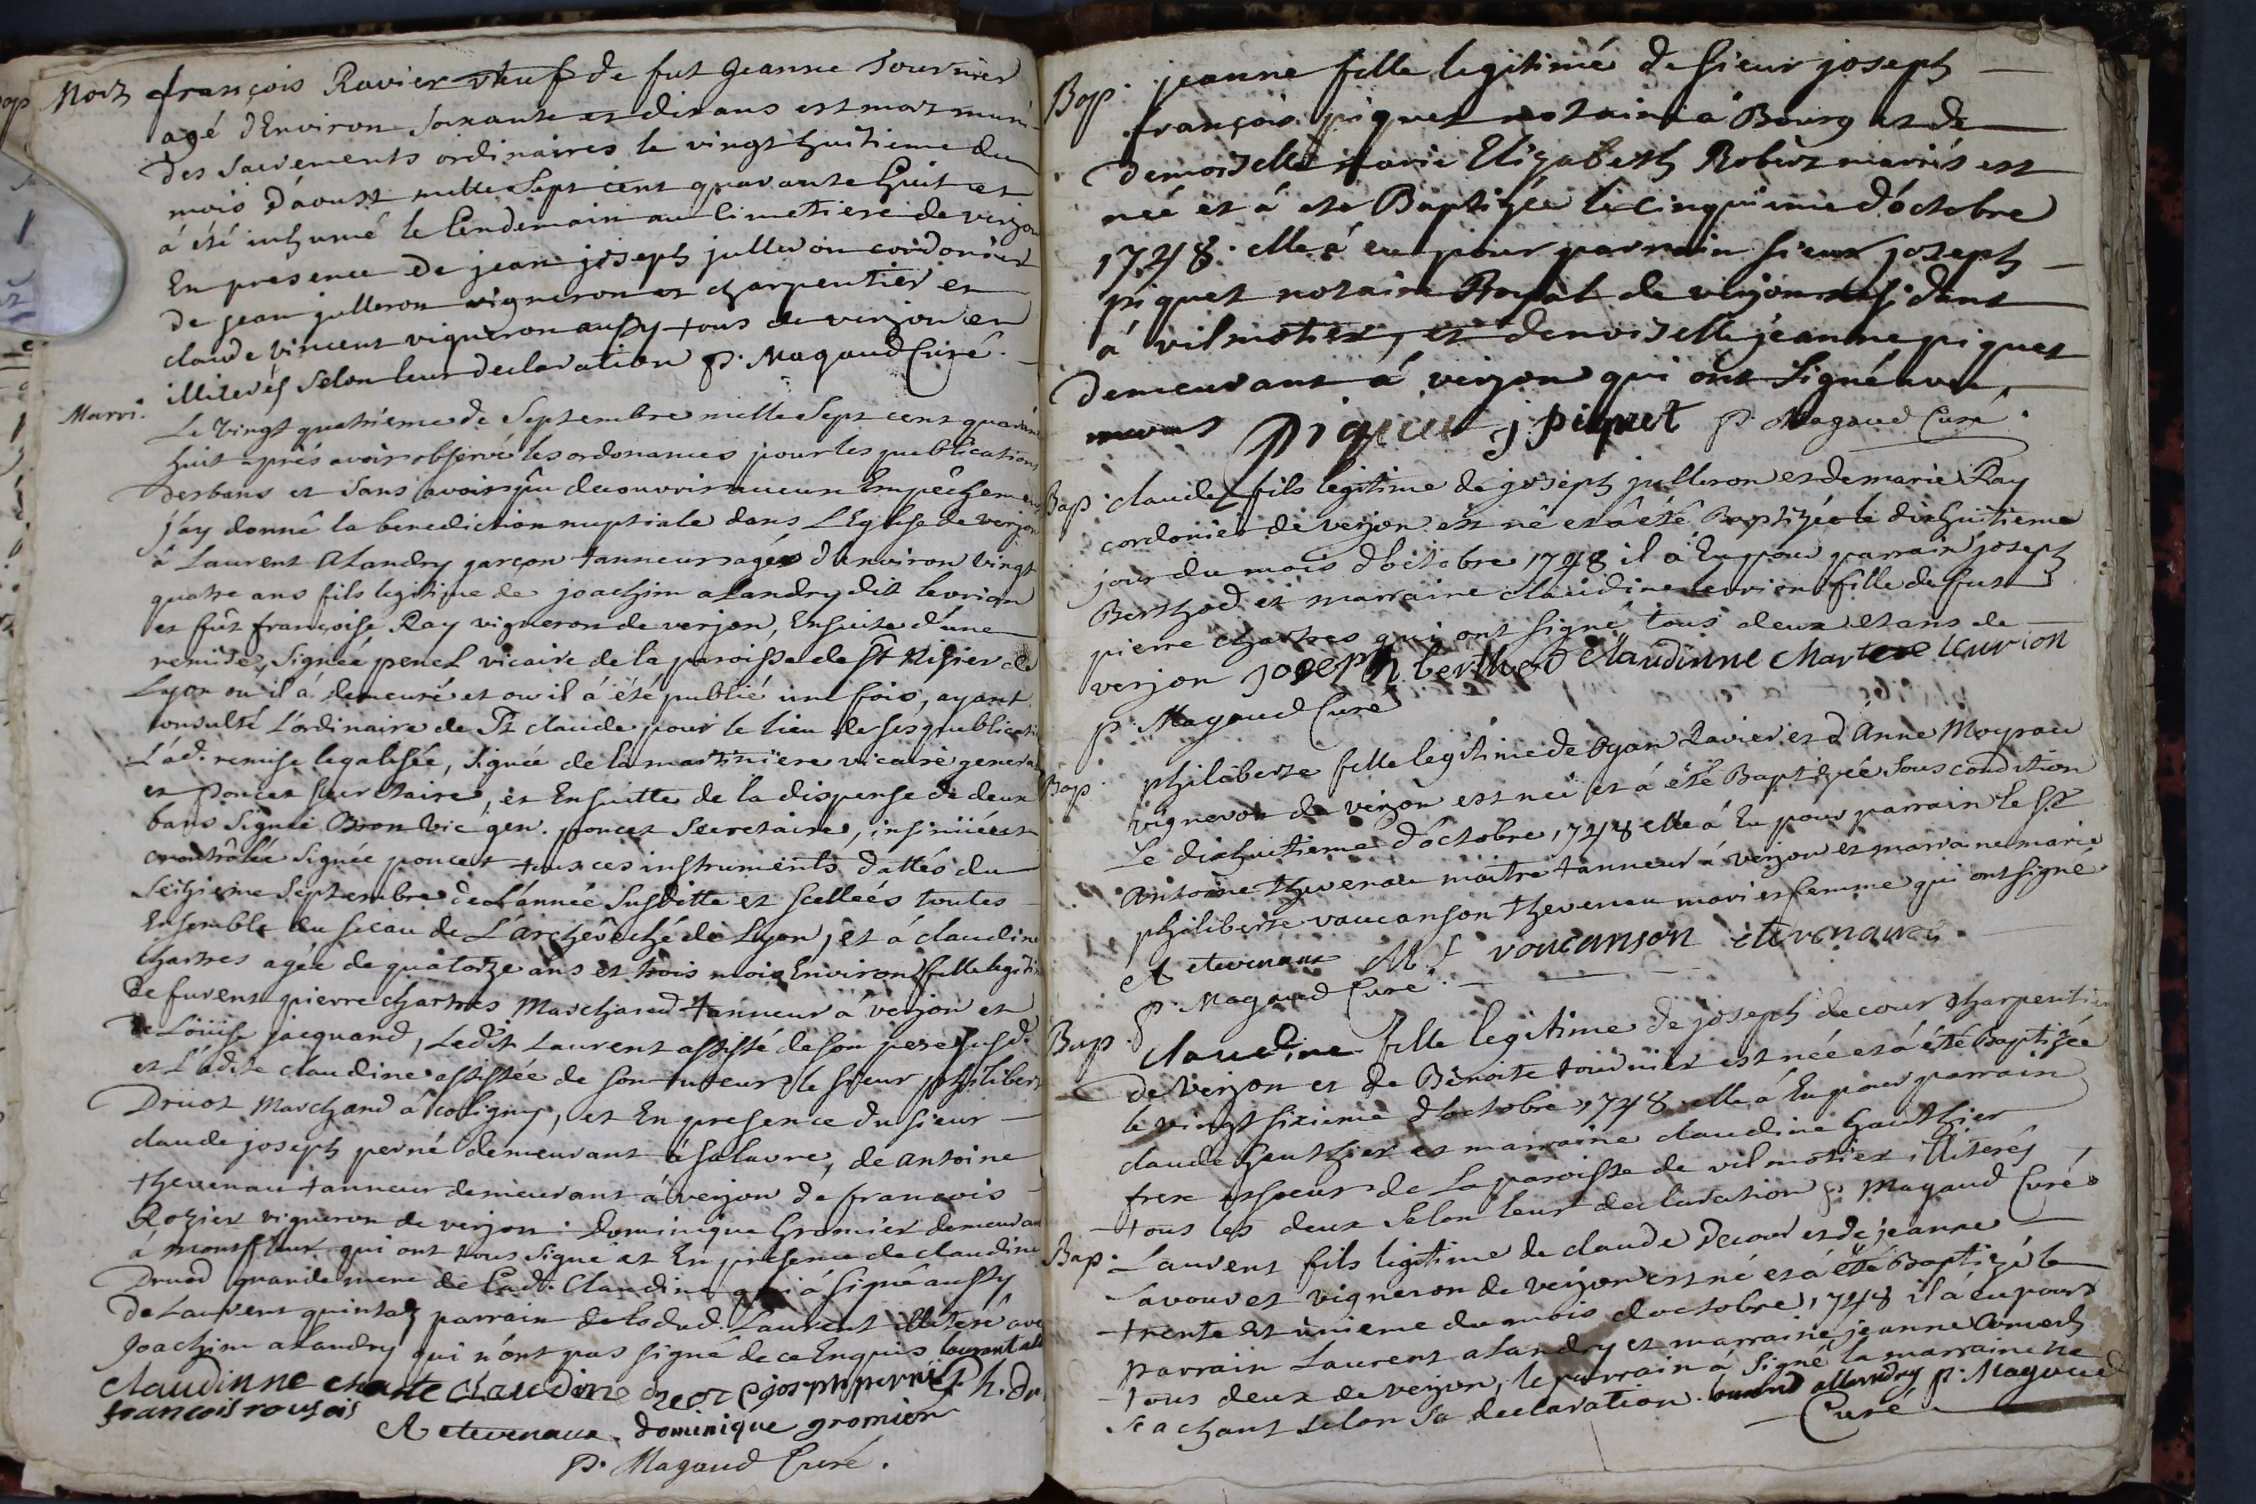 Mort françois Ravier veuf de fut Jeanne Tournier
agé d'Environ soixante et dix ans est mort muni
des sacrements ordinaires le vingt huitieme du
mois d'aoust mille sept cent quarante huit et
á été inhumé le lendemain au cimetiere de verjon
En presence de jean joseph julleron cordonier
de jean julleron vigneron et charpentier et
claude vincent vigneron aussy tous de verjon et
illiterés selon leur declaration p. Magaud Curé.
Marri. Le vingt quatrieme de Septembre mille Sept cent quarante
huit aprés avoir observé les ordonances pour les publications
des bans et sans avoir pû decouvrir aucun Empêchement
j'ay donné la benediction nuptiale dans L'Eglise de verjon
á Laurent alandry garçon tanneur agé d'environ vingt
quatre ans fils legitime de joachim alandry dit levrion
et fût françoise Ray vigneron de verjon, Ensuite d'une
remise, signée penel vicaire de la paroisse de St Nisier de
Lyon ou il á demeuré et ou il á été publié une fois, ayant
consulté L'ordinaire de St claude pour le lieu de ses publications
L'ad. remise legalisée, signée de la martiniere vicaire general
et poncet secretaire, et Ensuitte de la dispense de deux
bans signée Bron vic gen. poncet secretaire, insinüée et
controlée signée poncet tous ces instruments dattés du
seizieme Septembre de L'année susditte et scellées toutes
Ensemble du sceau de L'archevêché de Lyon, et á claudine
chartres agée de quatorze ans et trois mois Environ fille legitime
de furent pierre chartres Marchand tanneur á verjon et
de Loüise jacquand, Ledit Laurent assisté de son pere susd.
et L'adite claudine assistée de son tuteur le sieur philibert
Druot Marchand á coligny, et En presence du sieur
claude joseph perné demeurant á salavre, de antoine
thevenau tanneur demeurant á verjon de francois
Rozier vigneron de verjon. Dominique Gromier demeurant
á montfleur qui ont tous signé et En presence de claudine
Druod grande mere de Lad. Claudine qui á signé aussy
de Laurent quintaz parrain dudud. Laurent illiteré avec
Joachim alandry qui n'ont pas signé de ce Enquis laurent al
claudinne charte claudine druot c joseph pernï Ph. dr
francois rousois
A etevenaux. dominique gromier
P. Magaud Curé.
Bap. jeanne fille legitimé de sieur joseph
françois piquet notaire á Bourg et de
demoiselle marie Elizabeth Robert mariés est
neé et á eté Baptizée le cinquieme d'octobre
1748. elle á eu pour parrain sieur joseph
piquet notaire Royal de verjon residant
á vilmotier, et demoiselle jeanne piquet
demeurant á verjon qui ont signé avec
nous Piquet j piquet p. Magaud Curé.
Bap. claude fils legitime de joseph julleron et de marie Ray
cordonier de verjon est né et á été Baptizée le dixhuitieme
jour du mois d'octobre 1748 il á Eu pour parrain joseph
Berthod et marraine claudine levrion fille de fut
pierre chartres qui ont signé tous deux et ans de
verjon joseph berthod Claudinne Chartere leurion
p. Magaud Curé
Bap. philiberte fille legitime de Oyan Ravier et d'Anne Moyrau
vigneron de verjon est neé et á été Baptizée sous condition
Le dixhuitieme d'octobre 1748 elle á Eu pour parrain le sr
Antoine thevenau maitre tanneur á verjon et marraine marie
philiberte vaucanson thevenau mari et femme qui ont signé
A etevenaux M f voucanson etevenaux
p. Magaud Curé.
Bap. claudine fille legitime de joseph decour charpentier
de verjon et de Benoite tournier est née et á été Baptizée
le vingt sixieme d'octobre 1748. elle á Eu pour parrain
claude Gauthier et marraine claudine Gauthier
frere et soeur de la paroisse de vilmotier illiterés
tous les deux selon leur declaration p. Magaud Curé
Bap. Laurent fils legitime de claude Decour et de jeanne
savouret vigneron de verjon est né et á été Baptizé le
trente et unieme du mois d'octobre 1748 il á eu pour
parrain Laurent alandry et marraine jeanne
tous deux de verjon, le parrain á signé la marraine ne
sachant selon sa declaration. laurend allandry p. Magaud
Curé